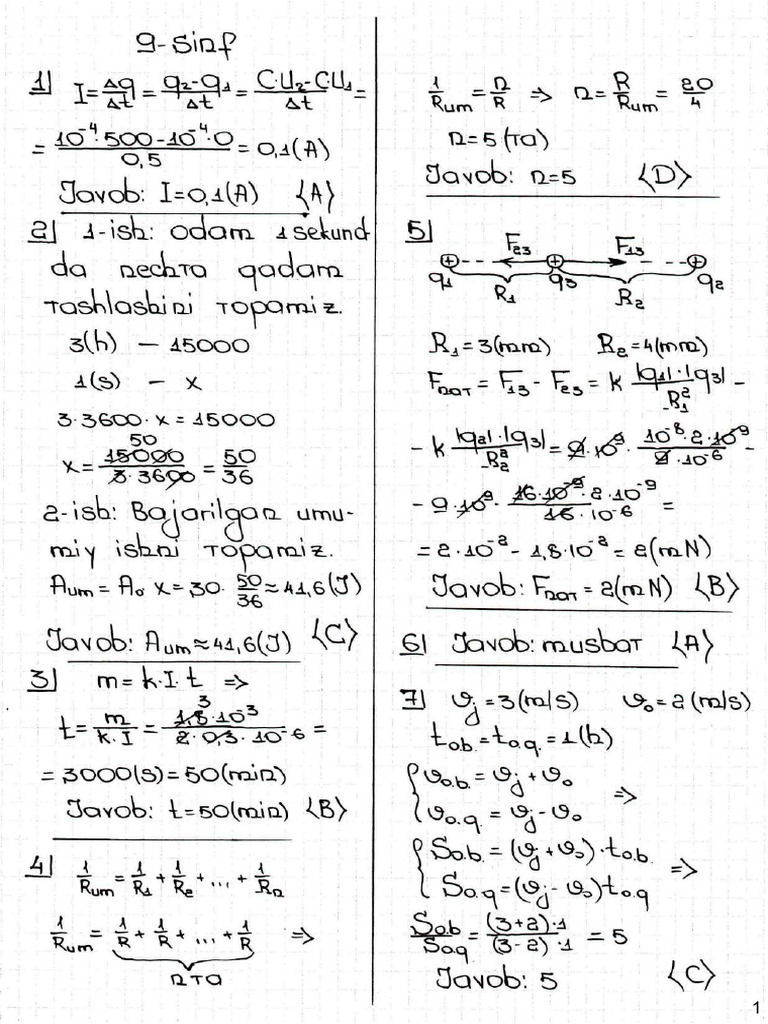 9-sinf
1) I=Δq/Δt=(q₂-q₁)/Δt=(C·U₂-C·U₁)/Δt=
=(10⁻⁴·500-10⁻⁴·0)/0,5=0,1(A)
Javob: I=0,1(A) <A>
2) 1-ish: odam 1 sekund
da nechta qadam
tashlashini topamiz.
3(h) - 15000
1(s) - x
3·3600·x=15000
50
x=15000/(3·3600)=50/36
2-ish: Bajarilgan umu-
miy ishni topamiz.
Aum=A₀ x=30·50/36≈41,6(J)
Javob: Aum≈41,6(J) <C>
3) m=k·I·t =>
3
t=m/(k·I)=(1,8·10⁻³)/(2·0,3·10⁻⁶)=
=3000(s)=50(min)
Javob: t=50(min) <B>
4) 1/Rum=1/R₁+1/R₂+...+1/Rn
1/Rum=1/R+1/R+...+1/R =>
n ta
1/Rum=n/R => n=R/Rum=20/4
n=5(ta)
Javob: n=5 <D>
5) F₂₃ F₁₃
q₁ q₃ q₂
R₁ R₂
R₁=3(mm) R₂=4(mm)
Fnat=F₁₃-F₂₃=k |q₁|·|q₃|/R₁² -
-k |q₂|·|q₃|/R₂²=9·10⁹·(10⁻⁸·2·10⁻⁹)/(9·10⁻⁶) -
-9·10⁹·(16·10⁻⁹·2·10⁻⁹)/(16·10⁻⁶)=
=2·10⁻²-1,8·10⁻²=2(mN)
Javob: Fnat=2(mN) <B>
6) Javob: musbat <A>
7) ϑj=3(m/s) ϑ₀=2(m/s)
to.b.=to.q.=1(h)
{ϑo.b.=ϑj+ϑ₀
{ϑo.q=ϑj-ϑ₀ =>
{So.b.=(ϑj+ϑ₀)·to.b.
{So.q=(ϑj-ϑ₀)to.q =>
So.b/So.q=((3+2)·1)/((3-2)·1)=5
Javob: 5 <C>
1